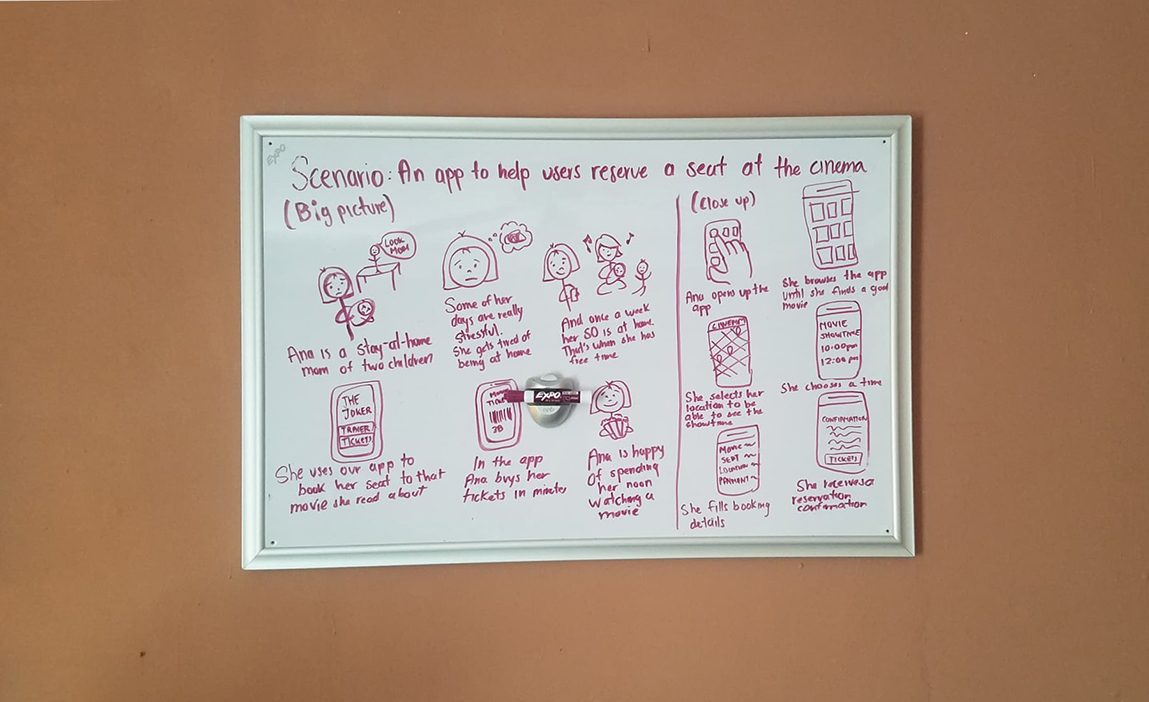 EXPO
Scenario: An app to help users reserve a seat at the cinema
(Big picture)
LOOK
MOM
Ana is a stay-at-home
mom of two children
Some of her
days are really
stressful.
She gets tired of
being at home
And once a week
her SO is at home.
That's when she has
free time
THE
JOKER
TICKETS
She uses our app to
book her seat to that
movie she read about
EXPO
In the app
Ana buys her
tickets in minutes
Ana is happy
of spending
her noon
watching a
movie
(Close up)
Ana opens up the
app
She browses the app
until she finds a good
movie
She selects her
location to be
able to see the
showtime
MOVIE
SHOWTIME
10:00pm
12:00pm
She chooses a time
MOVIE
SEAT
LOCATION
PAYMENT
She fills booking
details
CONFIRMATION
TICKETS
She receives a
reservation
confirmation